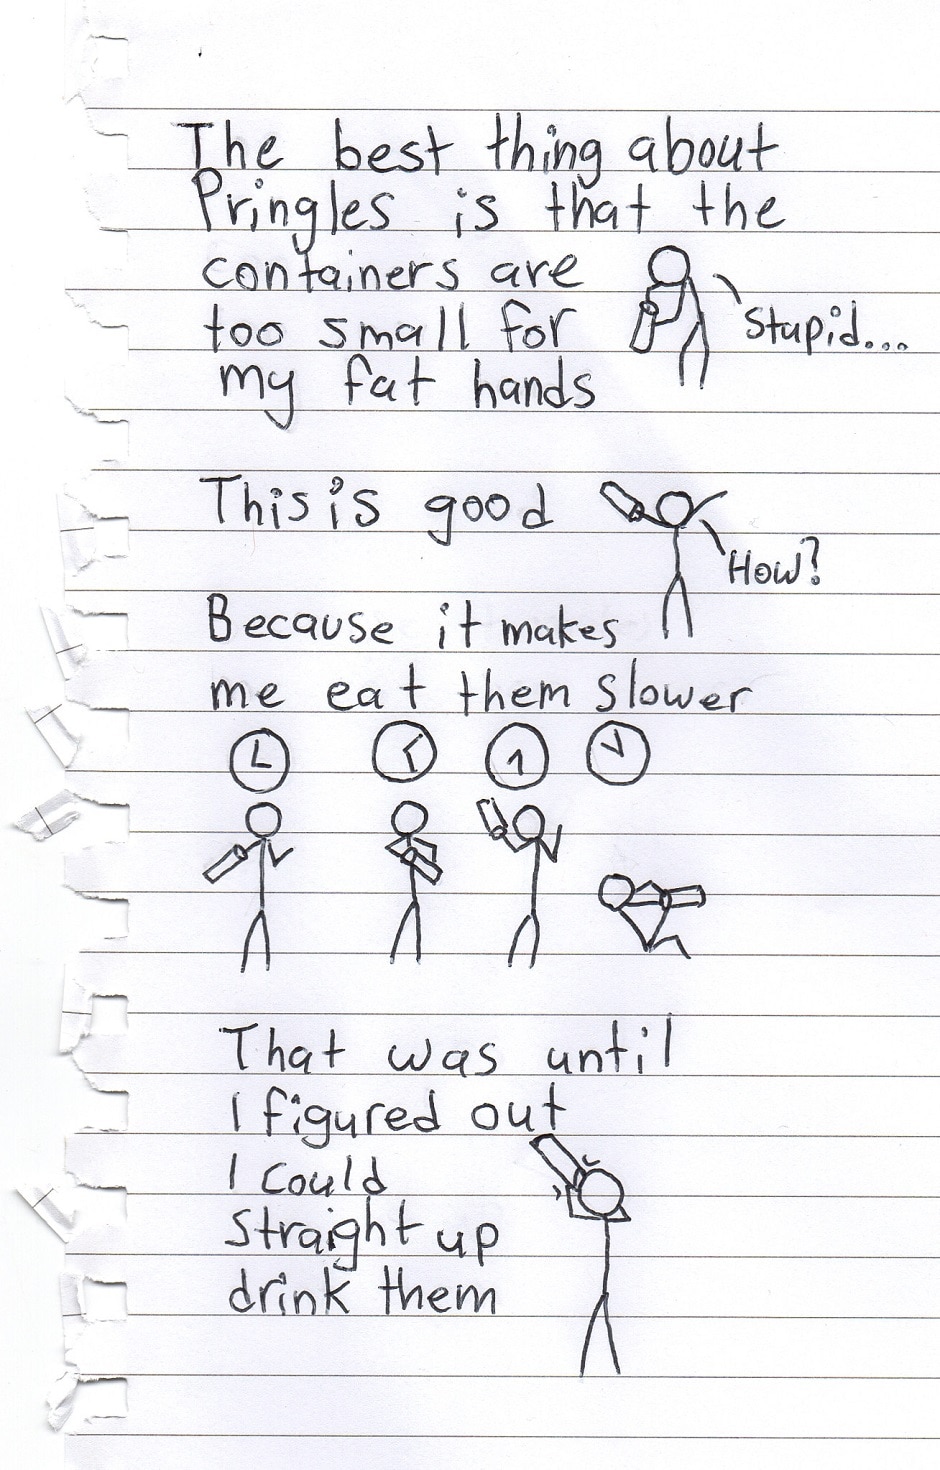 The best thing about
Pringles is that the
containers are
too small for
my fat hands
Stupid...
This is good
How?
Because it makes
me eat them slower
That was until
I figured out
I could
straight up
drink them